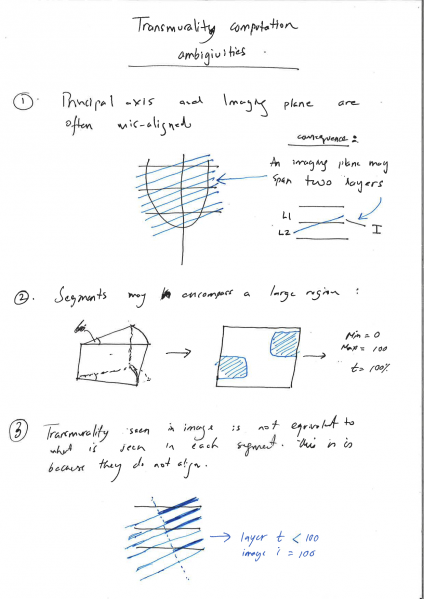 Transmurality computation
ambigiuities.
① Principal axis and Imaging plane are
often mis-aligned
consequence:
An imaging plane may
span two layers
L1
L2
I
②. Segments may encompass a large region:
Min = 0
Max = 100
t = 100%
③ Transmurality seen in image is not equivalent to
what is seen in each segment. this is
because they do not align.
layer t < 100
image i = 100